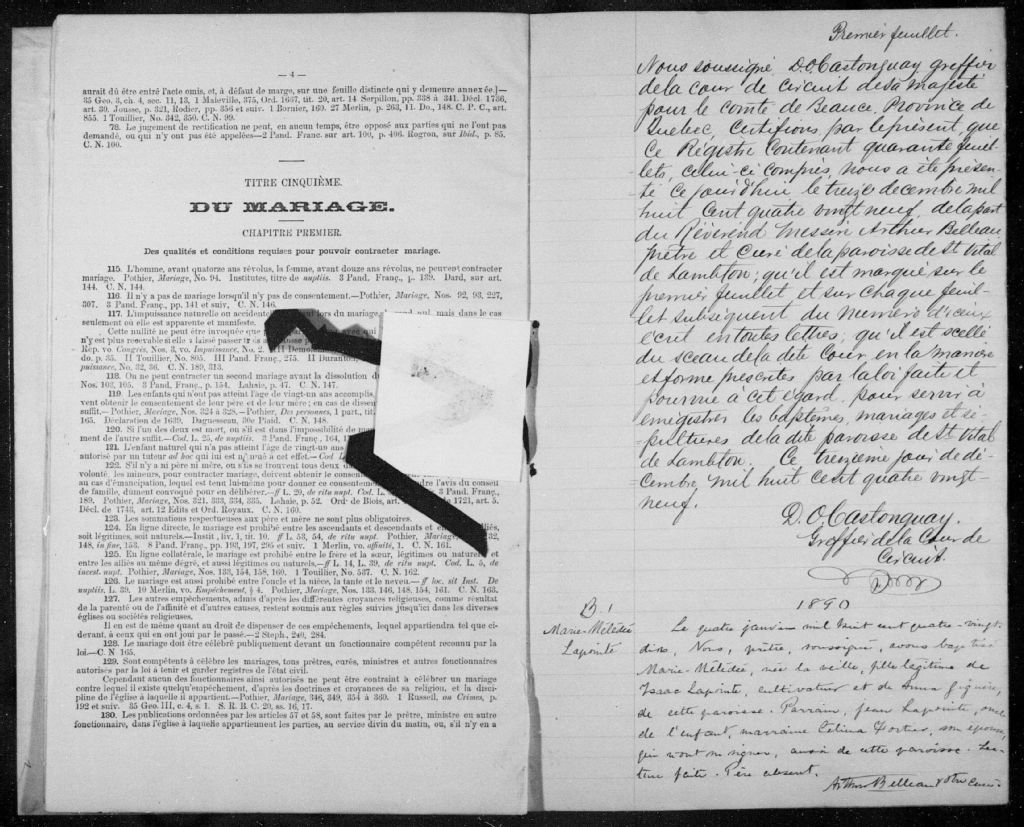 — 4 —
aurait dû être entré l'acte omis, et, à défaut de marge, sur une feuille distincte qui y demeure annexée.]—
35 Geo. 3, ch. 4, sec. 11, 13, 1 Maleville, 375, Ord. 1667, tit. 20, art. 14 Serpillon, pp. 338 à 341. Décl. 1736,
art. 30. Jousse, p. 321, Rodier, pp. 356 et suiv. 1 Bornier, 169. 27 Merlin, p. 263, 11. Do., 148. C. P. C., art.
855. 1 Touillier, No. 342, 350. C. N. 99.
78. Le jugement de rectification ne peut, en aucun temps, être opposé aux parties qui ne l'ont pas
demandé, ou qui n'y ont pas été appelées—2 Pand. Franc. sur art. 100, p. 406. Rogron, sur Ibid., p. 85.
C. N. 100.
TITRE CINQUIÈME.
DU MARIAGE.
CHAPITRE PREMIER.
Des qualités et conditions requises pour pouvoir contracter mariage.
115. L'homme, avant quatorze ans révolus, la femme, avant douze ans révolus, ne peuvent contracter
mariage. Pothier, Mariage, No. 94. Institutes, titre de nuptiis. 3 Pand. Franç., p. 139. Dard, sur art.
144. C. N. 144.
116. Il n'y a pas de mariage lorsqu'il n'y pas de consentement.—Pothier, Mariage, Nos. 92, 93, 227,
307. 3 Pand. Franç., pp. 141 et suiv. C. N. 146.
117. L'impuissance naturelle ou accidente lors du mariage nul, mais dans le cas
seulement où elle est apparente et manifeste.
Cette nullité ne peut être invoquée que
n'y est plus recevable si elle a laissé passer
Rép. vo. Congrès, Nos. 3, vo. Impuissance, No. 2.
do, p. 35. II Touillier, No. 805. III Pand. Franç., 275. II Duranton,
puissance, No. 32, 36. C. N. 189, 313.
118. On ne peut contracter un second mariage avant la dissolution d
Nos. 103, 105. 3 Pand. Franç., p. 154. Lahaie, p. 47. C. N. 147.
119. Les enfants qui n'ont pas atteint l'âge de vingt-un ans accomplis,
vent obtenir le consentement de leur père et de leur mère; en cas de disse
suffit.—Pothier, Mariage, Nos. 324 à 328.—Pothier, Des personnes, 1 part., tit.
165. Déclaration de 1639. Daguesseau, 30e Plaid. C. N. 148.
120. Si l'un des deux est mort, ou s'il est dans l'impossibilité de ma
ment de l'autre suffit.—Cod. L. 25, de nuptiis. 3 Pand. Franç., 164, 1
121. L'enfant naturel qui n'a pas atteint l'âge de vingt-un ans
autorisé par un tuteur ad hoc qui lui est nommé à cet effet.—Cod
122. S'il n'y a ni père ni mère, ou s'ils se trouvent tous deux d
volonté, les mineurs, pour contracter mariage, doivent obtenir le conse
au cas d'émancipation, lequel est tenu lui-même pour donner ce consente l'avis du conseil
de famille, dûment convoqué pour en délibérer.—ff L. 20, de ritu nupt. Cod. L. 3 Pand. Franç.,
189. Pothier, Mariage, Nos. 321, 333, 334, 335. Lahaie, p. 52. Ord. de Blois, art. 1721, art. 5.
Décl. de 1743, art. 12 Edits et Ord. Royaux. C. N. 160.
123. Les sommations respectueuses aux père et mère ne sont plus obligatoires.
124. En ligne directe, le mariage est prohibé entre les ascendants et descendants et en liés,
soit légitimes, soit naturels.—Instit., liv. 1, tit. 10. ff L. 53, 54, de ritu nupt. Pothier, Mariage, 32,
148, in fine, 153. 3 Pand. Franç., pp. 193, 197, 295 et suiv. 1 Merlin, vo. affinité, 1. C. N. 161.
125. En ligne collatérale, le mariage est prohibé entre le frère et la sœur, légitimes ou naturels et
entre les alliés au même dégré, et aussi légitimes ou naturels.—ff L. 14, L. 39, de ritu nupt. Cod. L. 5, de
incest. nupt. Pothier, Mariage, Nos. 133, 154, 158, 160. 1 Touillier, No. 537. C. N. 162.
126. Le mariage est aussi prohibé entre l'oncle et la nièce, la tante et le neveu.—ff loc. sit Inst. De
nuptiis. L. 39. 10 Merlin, vo. Empêchement, § 4. Pothier, Mariage, Nos. 133, 146, 148, 154, 161. C. N. 163.
127. Les autres empêchements, admis d'après les différentes croyances religieuses, comme résultat
de la parenté ou de l'affinité et d'autres causes, restent soumis aux règles suivies jusqu'ici dans les diverses
églises ou sociétés religieuses.
Il en est de même quant au droit de dispenser de ces empêchements, lequel appartiendra tel que ci-
devant, à ceux qui en ont joui par le passé.—2 Steph., 240, 284.
128. Le mariage doit être célébré publiquement devant un fonctionnaire compétent reconnu par la
loi.—C. N. 165.
129. Sont compétents à célèbre les mariages, tous prêtres, curés, ministres et autres fonctionnaires
autorisés par la loi à tenir et garder registres de l'état civil.
Cependant aucun des fonctionnaires ainsi autorisés ne peut être contraint à célébrer un mariage
contre lequel il existe quelqu'empêchement, d'après les doctrines et croyances de sa religion, et la disci-
pline de l'église à laquelle il appartient.—Pothier, Mariage, 346, 349, 354 à 360. 1 Russell, on Crimes, p.
192 et suiv. 35 Geo. III, c. 4, s. 1. S. R. B. C. 20, ss. 16, 17.
130. Les publications ordonnées par les articles 57 et 58, sont faites par le prêtre, ministre ou autre
fonctionnaire, dans l'église à laquelle appartiennent les parties, au service divin du matin, ou, s'il n'y en a
Premier feuillet.
Nous soussigné, D. O. Castonguay greffier
de la cour de circuit de sa majesté
pour le comté de Beauce, Province de
Québec, certifions par le présent, que
ce Régistre contenant quarante feuil-
lets, celui-ci compris, nous a été présen-
té ce jourd'hui le treize decembre mil
huit cent quatre vingt neuf, de la part
du Révérend Messire Arthur Belleau
prêtre et curé de la paroisse de St Vital
de Lambton; qu'il est marqué sur le
premier feuillet et sur chaque feuil-
let subséquent du numéro d'iceux
écrit en toutes lettres, qu'il est scellé
du sceau de la dite Cour, en la manière
et forme prescrites par la loi faite et
pourvue à cet égard, pour servir à
enregistrer les baptêmes, mariages et sé-
pultures de la dite paroisse de St Vital
de Lambton. Ce treizième jour de dé-
cembre mil huit cent quatre vingt-
neuf.
D. O. Castonguay.
Greffier de la Cour de
Circuit.
1890
B. 1
Marie-Mélédée
Lapointe
Le quatre janvier mil huit cent quatre-vingt-
dix, Nous, prêtre, soussigné, avons baptisé
Marie-Mélédée, née la veille, fille légitime de
Isaac Lapointe, cultivateur et de Anna Giguère,
de cette paroisse. Parrain, Jean Lapointe, oncle
de l'enfant, marraine Célina Fortier, son épouse,
qui n'ont su signer, aussi de cette paroisse. Lec-
ture faite. Père absent.
Arthur Belleau Ptre Curé.